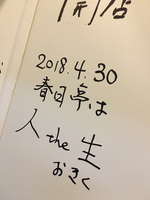 開店
2018.4.30
春日亭は
人 the 生
おきく